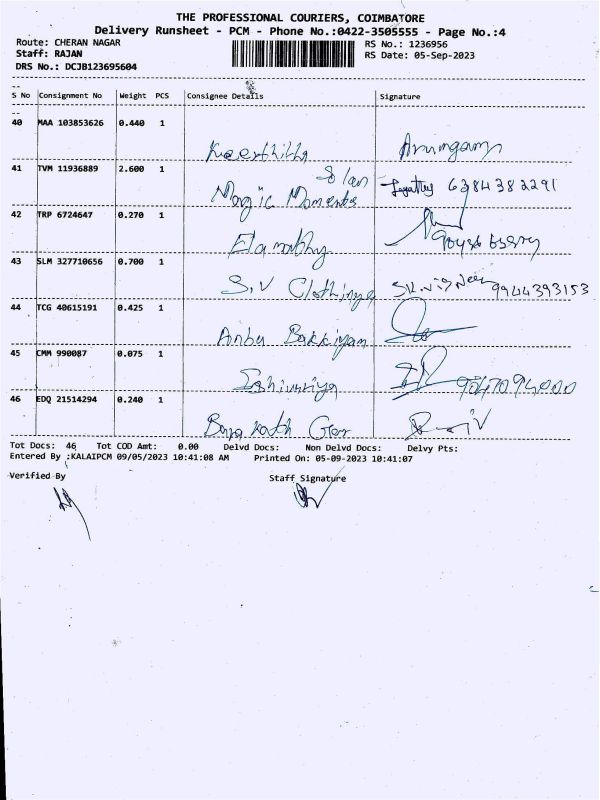 THE PROFESSIONAL COURIERS, COIMBATORE
Delivery Runsheet - PCM - Phone No.:0422-3505555 - Page No.:4
Route: CHERAN NAGAR RS No.: 1236956
Staff: RAJAN RS Date: 05-Sep-2023
DRS No.: DCJB123695604
S No Consignment No Weight PCS Consignee Details Signature
40 MAA 103853626 0.440 1
Keerthika
41 TVM 11936889 2.600 1
Magic Moments 6384382291
42 TRP 6724647 0.270 1
Elamathy
43 SLM 327710656 0.700 1
S.V Clothings 9944393153
44 TCG 40615191 0.425 1
Anbu Bakkiyam
45 CMM 990087 0.075 1
9047094000
46 EDQ 21514294 0.240 1
Tot Docs: 46 Tot COD Amt: 0.00 Delvd Docs: Non Delvd Docs: Delvy Pts:
Entered By :KALAIPCM 09/05/2023 10:41:08 AM Printed On: 05-09-2023 10:41:07
Verified By Staff Signature